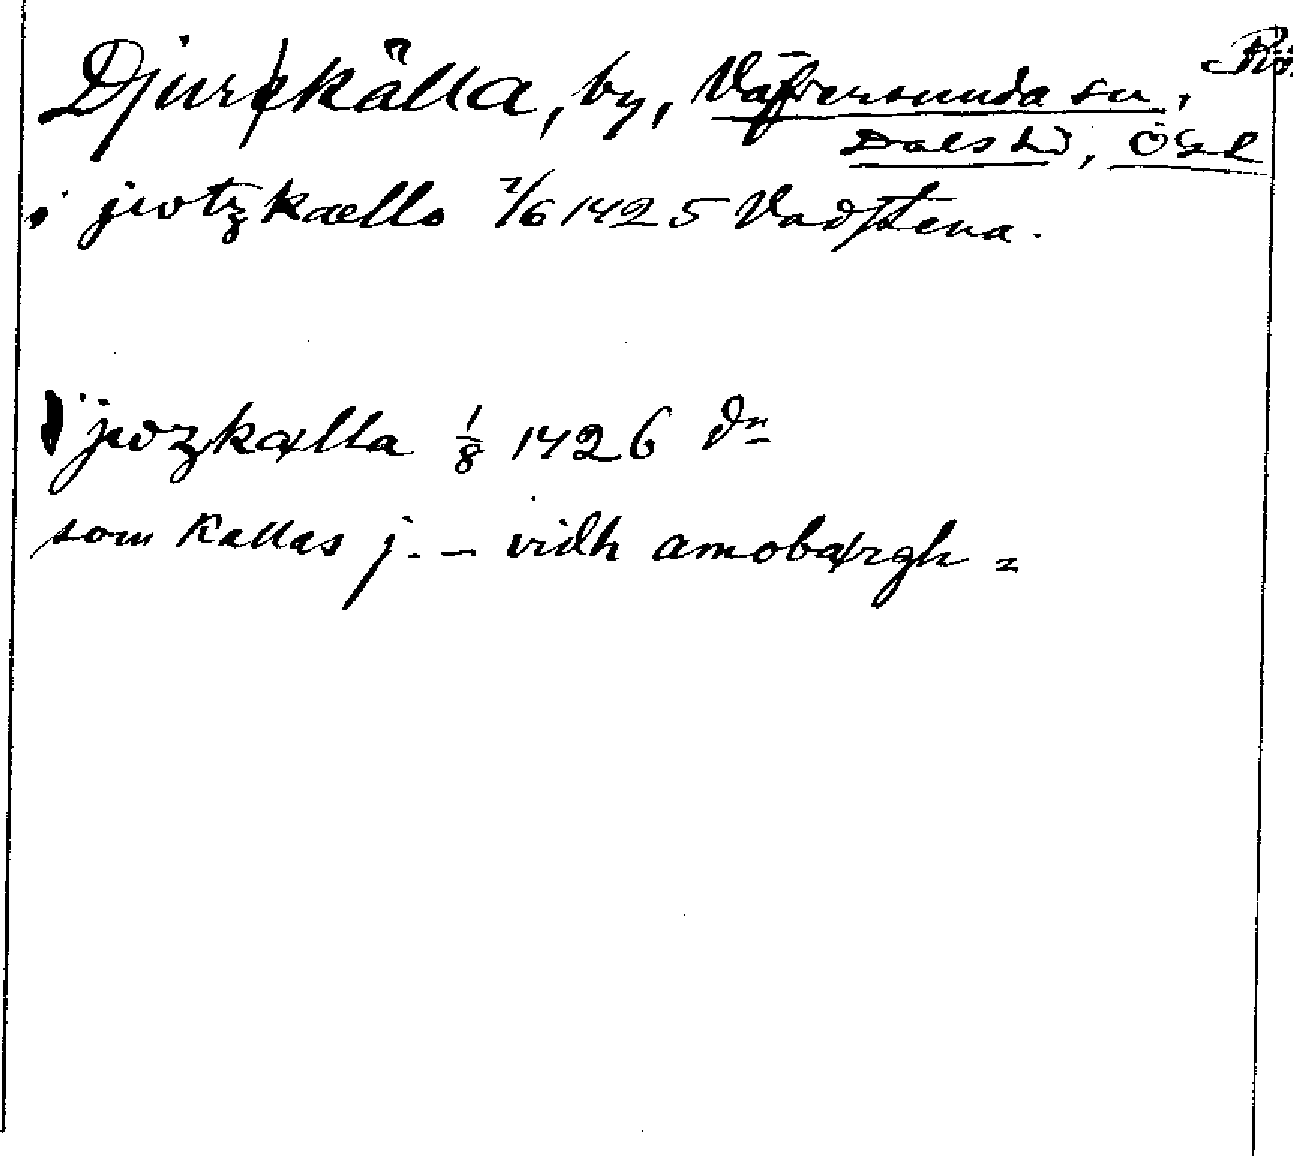 Djurkälla, by, Väfversunda sn,
Dals hd, Ögl
i jwtzkællo 7/6 1425 Vadstena.
jwzkælla 1/8 1426 dn
som kallas j. – vidh amobærgh =